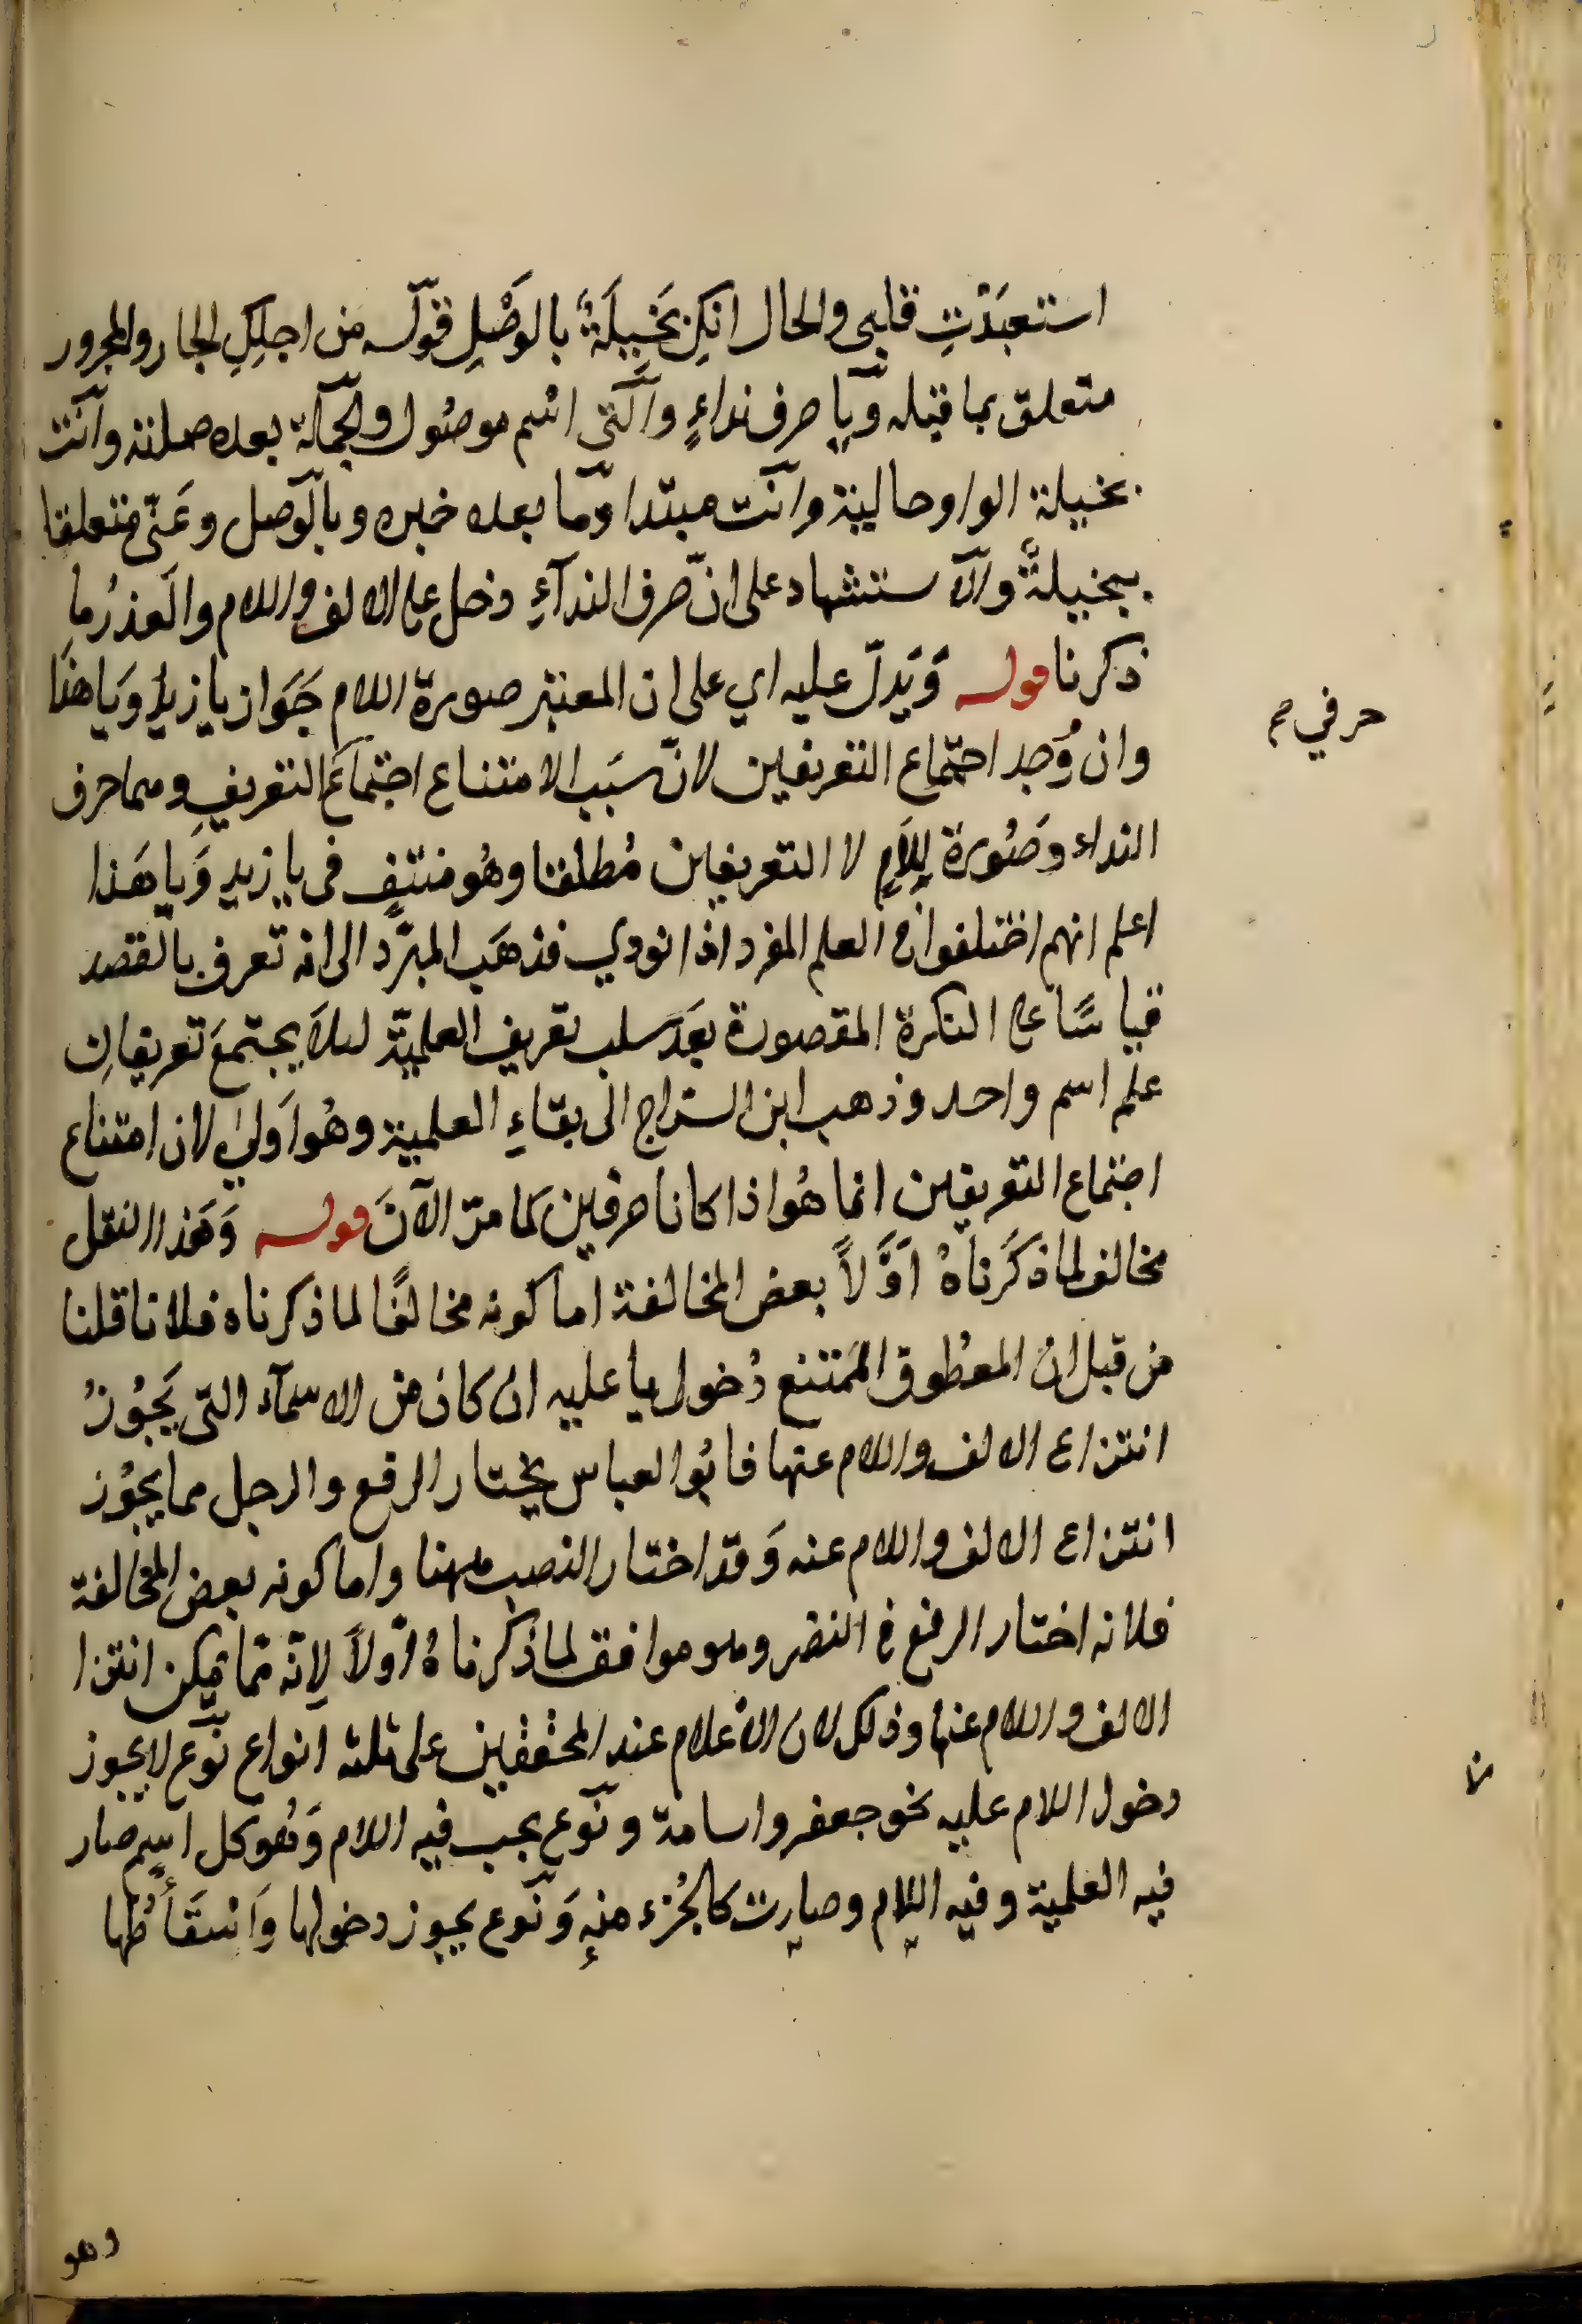 استعبَدْتِ قلبى والحال انكِ بَخِيلَةٌ بالوَصْلِ قوله من اجلِكِ الجار والمجرور
متعلق بما قبله ويا حرف نداءٍ والتى اسم موصُول والجملة بعده صلته وانت
بخيلة الواو حالية وانت مبتدا وما بعده خبره وبالوصل وعنّى متعلقا
ببخيلةٌ والاستشهاد على انّ حرف الندآءِ دخل على الالف واللام والعذرُ ما
ذكرنا قوله وَيَدلّ عليه اي على ان المعتبر صورة اللام جَوَاز يا زيدُ وَيا هذَا
وان وُجد اجتماع التعريفين لانّ سَبَب الامتناع اجتماعَ التعريفِ وهما حرف
حرفي صح
النداء وصُورة اللامِ لا التعريفين مُطلقا وهُو منتفٍ فى يا زيد وَيا هَذا
اعلم انهم اختلفوا ان العلم المفرد اذا نودي فذهَب المبرّد الى انه تعرف بالقصد
قياسًا على النكرة المقصودة بَعدَ سلب تعريف العلميّة لئلا يجتمعَ تعريفانِ
علم اسم واحد وذهب ابن السّراج الى بقاءِ العلمية وهُو اَولىٰ لان امتناع
اجتماع التعريفين انما هُو اذا كانا حرفين كما مرّ الآنَ قوله وَهَذا النقل
مخالف لما ذكَرناهُ اَوَّلاً بعض المخالفة اما كونه مخالفًا لما ذكرناه فلانا قلنا
من قبل ان المعطوف الممتنع دُخول يا عليه ان كان من الاسمآء التى يَجُوزُ
انتزاع الالف واللام عنها فابُو العباس يختار الرفع والرجل مما يجُوز
انتزاع الالف واللام عنه وَقد اختار النصب ههنا واما كونه بعض المخالفة
فلانه اختار الرفع فى النضر وهو موافق لما ذكرناهُ اوّلاً لانّه مّما يمكن انتزا
الالف واللام عنها وذلك لان الاَعلام عند المحققين على ثلثه انواع نوع لا يجوز
دخول اللام عليه نحو جعفر واسامة ونوع يجب فيه اللام وَهُو كل اسمٍ صار
فيه العلمية وفيه اللام وصارت كالجُزء منه وَنوع يجوز دخولها وَاسقَاطُها
وهو